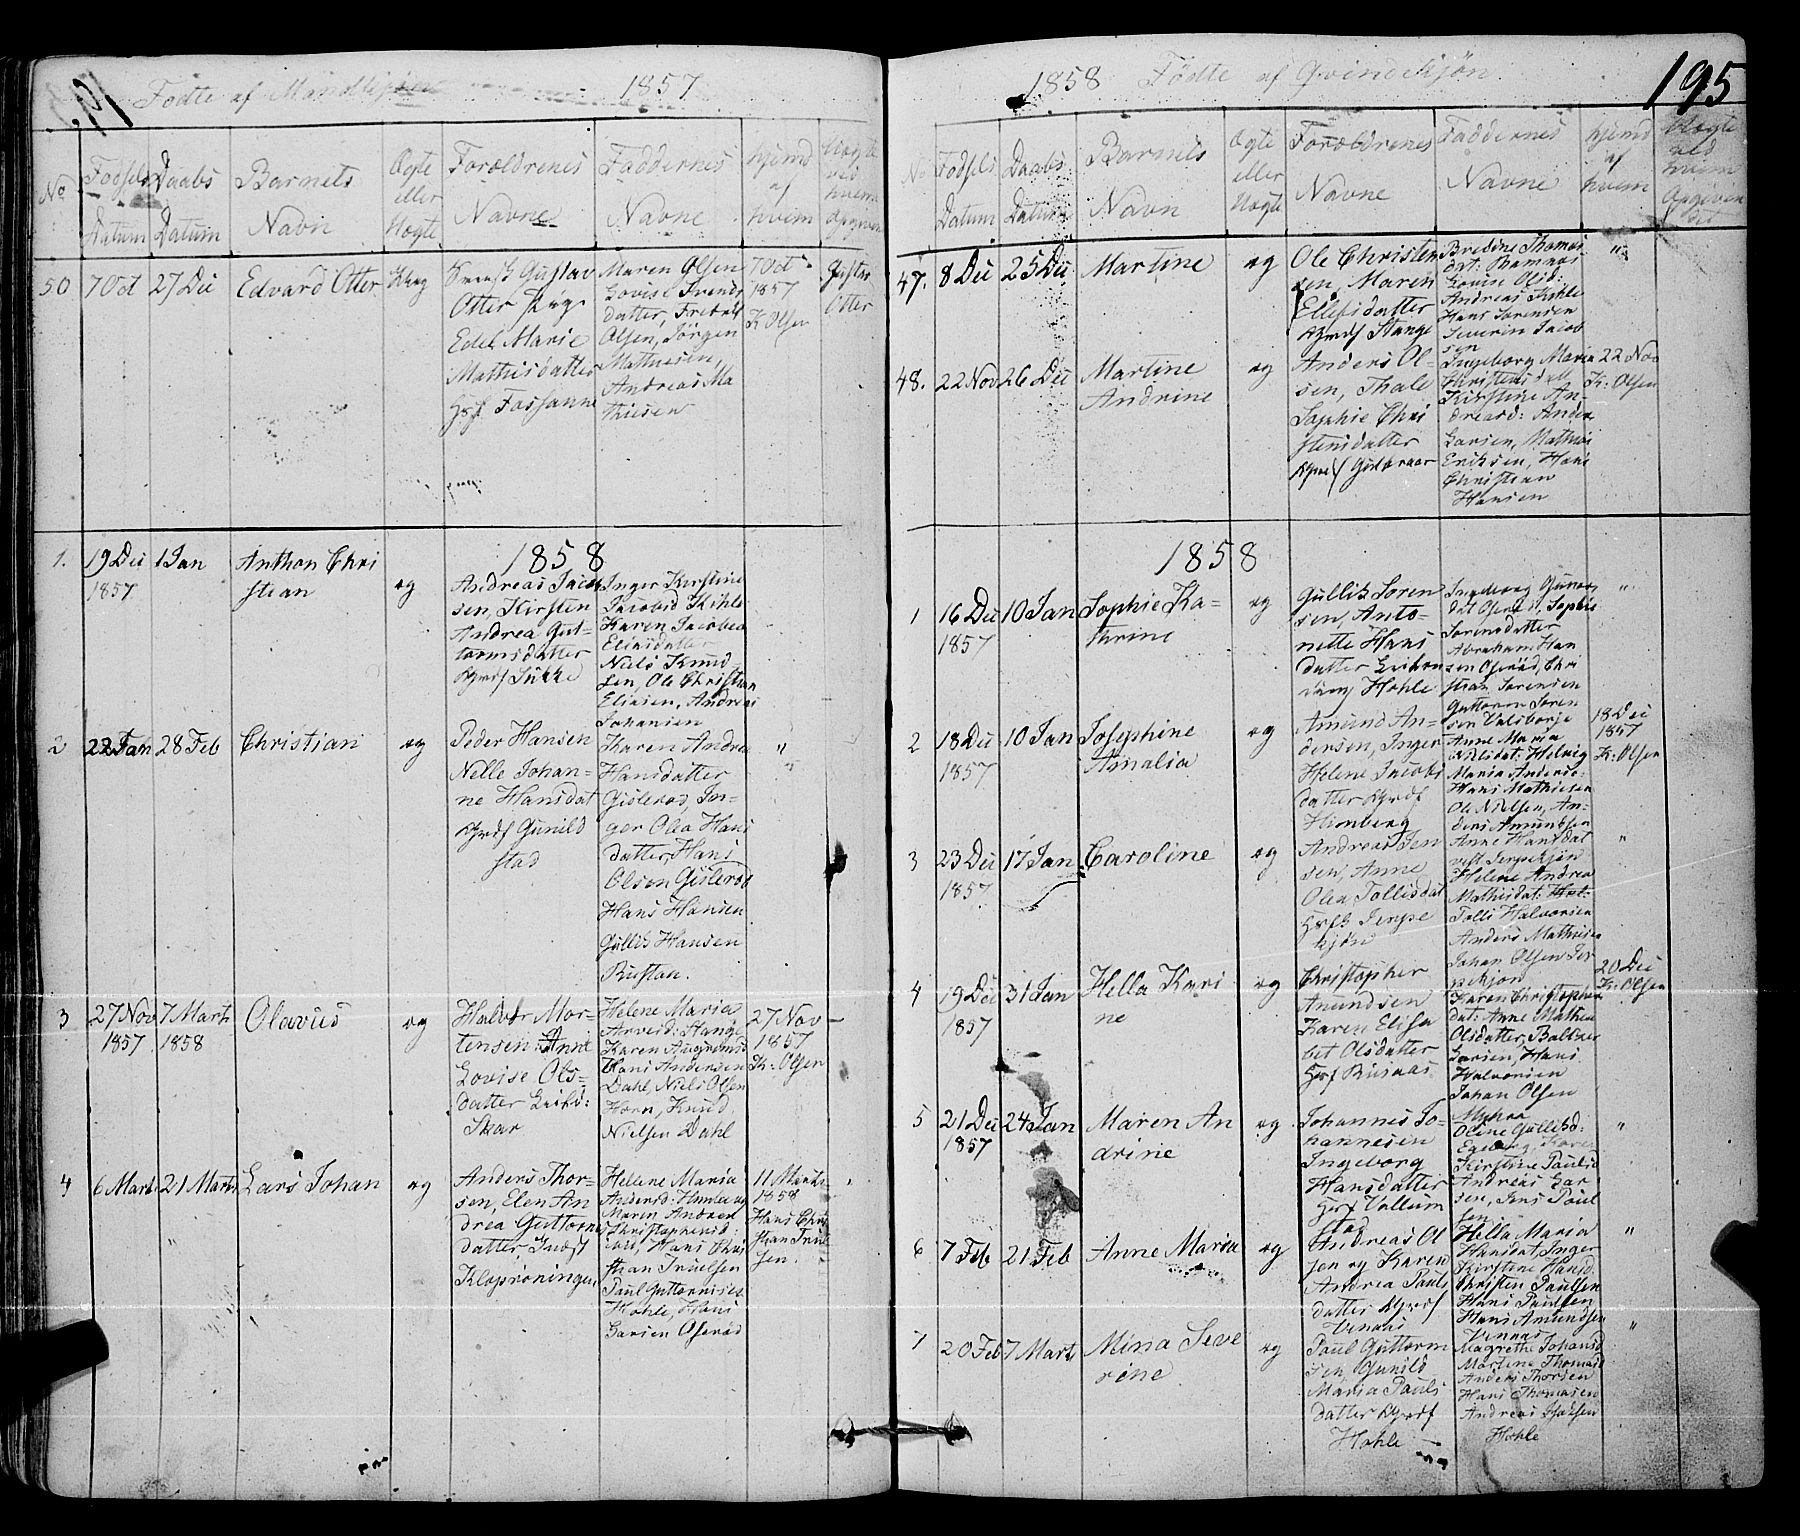 Födte af Mandkjön 1857
No
Födsels
Datum
Daabs
Datum
Barnets
Navn
Ægte
eller
Uægte
Forældrenes
Navne
Faddernes
Navne
hjemd
af
hvem
Uægte
ved
hvem
Opgiven
50 7 Oct 27 Dec Edvard Otter Uæg
Gustav
Otter
Edel Marie
Mathisdatter
Maren Olsen
Lovise Svends
datter,
Olsen, Jörgen
Mathiesen
Andreas Ma
thiesen
7 Oct
1857
K Olsen
Gustav
Otter
1858
1. 19 Dec 1 Jan Anthon Chri
1857 stian
og
Andreas Jacob
sen, Kirsten
Andrea Gut-
tormsdatter
Inger Kirstine
Jacobsd Kihle
Karen Jacobea
Eliasdatter
Niels Knud
sen, Ole Christian
Eliasen, Andreas
Johansen
2 22 Jan 28 Feb Christian og
Peder Hansen
Nelle Johan-
ne Hansdat
Gunild
stad
Karen Andrea
Hansdatter
Gislerød, In-
ger Olea Hans
datter, Hans
Olsen Gislerød
Hans Hansen
Gullik Hansen
Rustan.
" "
3 27 Nov 7 Marts Olavus og
1857 1858
Halvor Mor-
tensen, Anne
Lovise Ols-
datter
Skar
Helene Maria
Karen
Hans Andersen
Dahl, Niels Olsen
Horn, Knud
Nielsen Dahl
27 Nov
1857
K. Olsen
4 6 Marts 21 Marts Lars Johan og
Anders Thor-
sen, Elen An
drea Guttorms
datter, Indst
Helene Maria
Maren Andrea
Christophersd:
Hans Chri
stian Truelsen
Paul Guttormsen
Hohle, Hans
Larsen Oserød
11 Marts
1858
Hans Chri
stian Truel
sen.
1858 Födte af Qvindekjön 195
No
Födsels
Datum
Daabs
Datum
Barnets
Navn
Ægte
eller
Uægte
Forældrenes
Navne
Faddernes
Navne
hjemd
af
hvem
Uægte
ved
hvem
Opgiven
det
47. 8 Dec 25 Dec Martine og
Ole Christen
sen, Maren
Ellefsdatter
Stange
Bredine Thomas
dat:
Lovise Olsd:
Andreas Kihle
Hans Sorensen
Severin Jacob
sen
"
48. 22 Nov 26 Dec Martine og
Andrine
Anders Ol-
sen, Thale
Sophie Chri
stensdatter
Ingeborg Maria
Christensdatt
Kirstine An-
dreasd: Anders
Larsen, Mathias
Eriksen, Hans
Christian
Hansen
22 Nov
K: Olsen
1858
1 16 Dec 10 Jan Sophie Ka- og
1857 thrine
Gullik Soren
sen, Anto-
nette Hans
datter
Hohle
Ingeborg Gunars
dat Sophie
Sorensdatter
Abraham Han
sen Oserød, Chri
stian Sorensen
Guttorm Soren
sen
"
2 18 Dec 10 Jan Josephine og
1857 Amalia
Amund An-
dersen, Inger
Helene Jacobs
datter
Himberg
Anne Maria
Nielsdat: Helvig
Maria Andersd:
Hans Mathiesen
Ole Nielsen, An-
ders Amundsen
18 Dec
1857
K: Olsen
3 23 Dec 17 Jan Caroline og
1857
Andreas Jen
sen, Anne
Olea Tollefsdat
kjön
Anne Hansdat
Helene Andrea
Mathisdat:
Tolle Halvorsen
Anders Mathisen
Johan Olsen
"
4 19 Dec 31 Jan Hella Kari og
1857 ne
Christopher
Anundsen
Karen Elisa
bet Olsdatter
Karen Christopher
dat: Anne Mathea
Olsdatter, Baltzer
Larsen, Hans
Halvorsen
Johan Olsen
20 Dec
K: Olsen
5 21 Dec 24 Jan Maren An og
1857 drine
Johannes Jo-
hannesen
Ingeborg
Hansdatter
Vallum
Oline Gulliksd:
Kirstine Paulsd
Andreas Lar
sen, Jens Paul
sen
"
6 7 Feb 21 Feb Anne Maria og
Andreas Ol
sen og Karen
Andrea Pauls
datter
Venaas
Hella Maria
Hansdat, Inger
Kirstine Hansd.
Christen Paulsen
Hans Paulsen
Hans Amundsen
Venaas
"
7 20 Feb 7 Marts Mina Seve og
rine
Paul Guttorm
sen, Gunild
Maria Pauls
datter
Hohle
Magrethe Johansd
Martine Thomasd
Anders Thorsen
Hans Thomasen
Andreas
Hohle
"